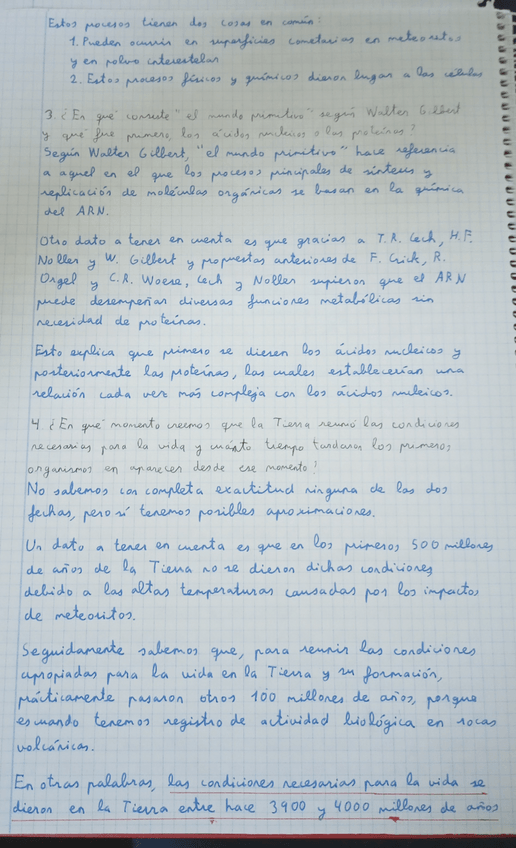 Estos procesos tienen dos cosas en común:
1. Pueden ocurrir en superficies cometarias en meteoritos
y en polvo interestelar
2. Estos procesos físicos y químicos dieron lugar a las células
3. ¿En qué consiste "el mundo primitivo" según Walter Gilbert
y qué fue primero, los ácidos nucleicos o las proteínas?
Según Walter Gilbert, "el mundo primitivo" hace referencia
a aquel en el que los procesos principales de síntesis y
replicación de moléculas orgánicas se basan en la química
del ARN.
Otro dato a tener en cuenta es que gracias a T.R. Cech, H.F.
Noller y W. Gilbert y propuestas anteriores de F. Crick, R.
Orgel y C.R. Woese, Cech y Noller supieron que el ARN
puede desempeñar diversas funciones metabólicas sin
necesidad de proteínas.
Esto explica que primero se diesen los ácidos nucleicos y
posteriormente las proteínas, las cuales establecerían una
relación cada vez más compleja con los ácidos nucleicos.
4 ¿En qué momento creemos que la Tierra reunió las condiciones
necesarias para la vida y cuánto tiempo tardaron los primeros
organismos en aparecer desde ese momento?
No sabemos con completa exactitud ninguna de las dos
fechas, pero sí tenemos posibles aproximaciones.
Un dato a tener en cuenta es que en los primeros 500 millones
de años de la Tierra no se dieron dichas condiciones
debido a las altas temperaturas causadas por los impactos
de meteoritos.
Seguidamente sabemos que, para reunir las condiciones
apropiadas para la vida en la Tierra y su formación,
prácticamente pasaron otros 100 millones de años, porque
es cuando tenemos registro de actividad biológica en rocas
volcánicas.
En otras palabras, las condiciones necesarias para la vida se
dieron en la Tierra entre hace 3900 y 4000 millones de años